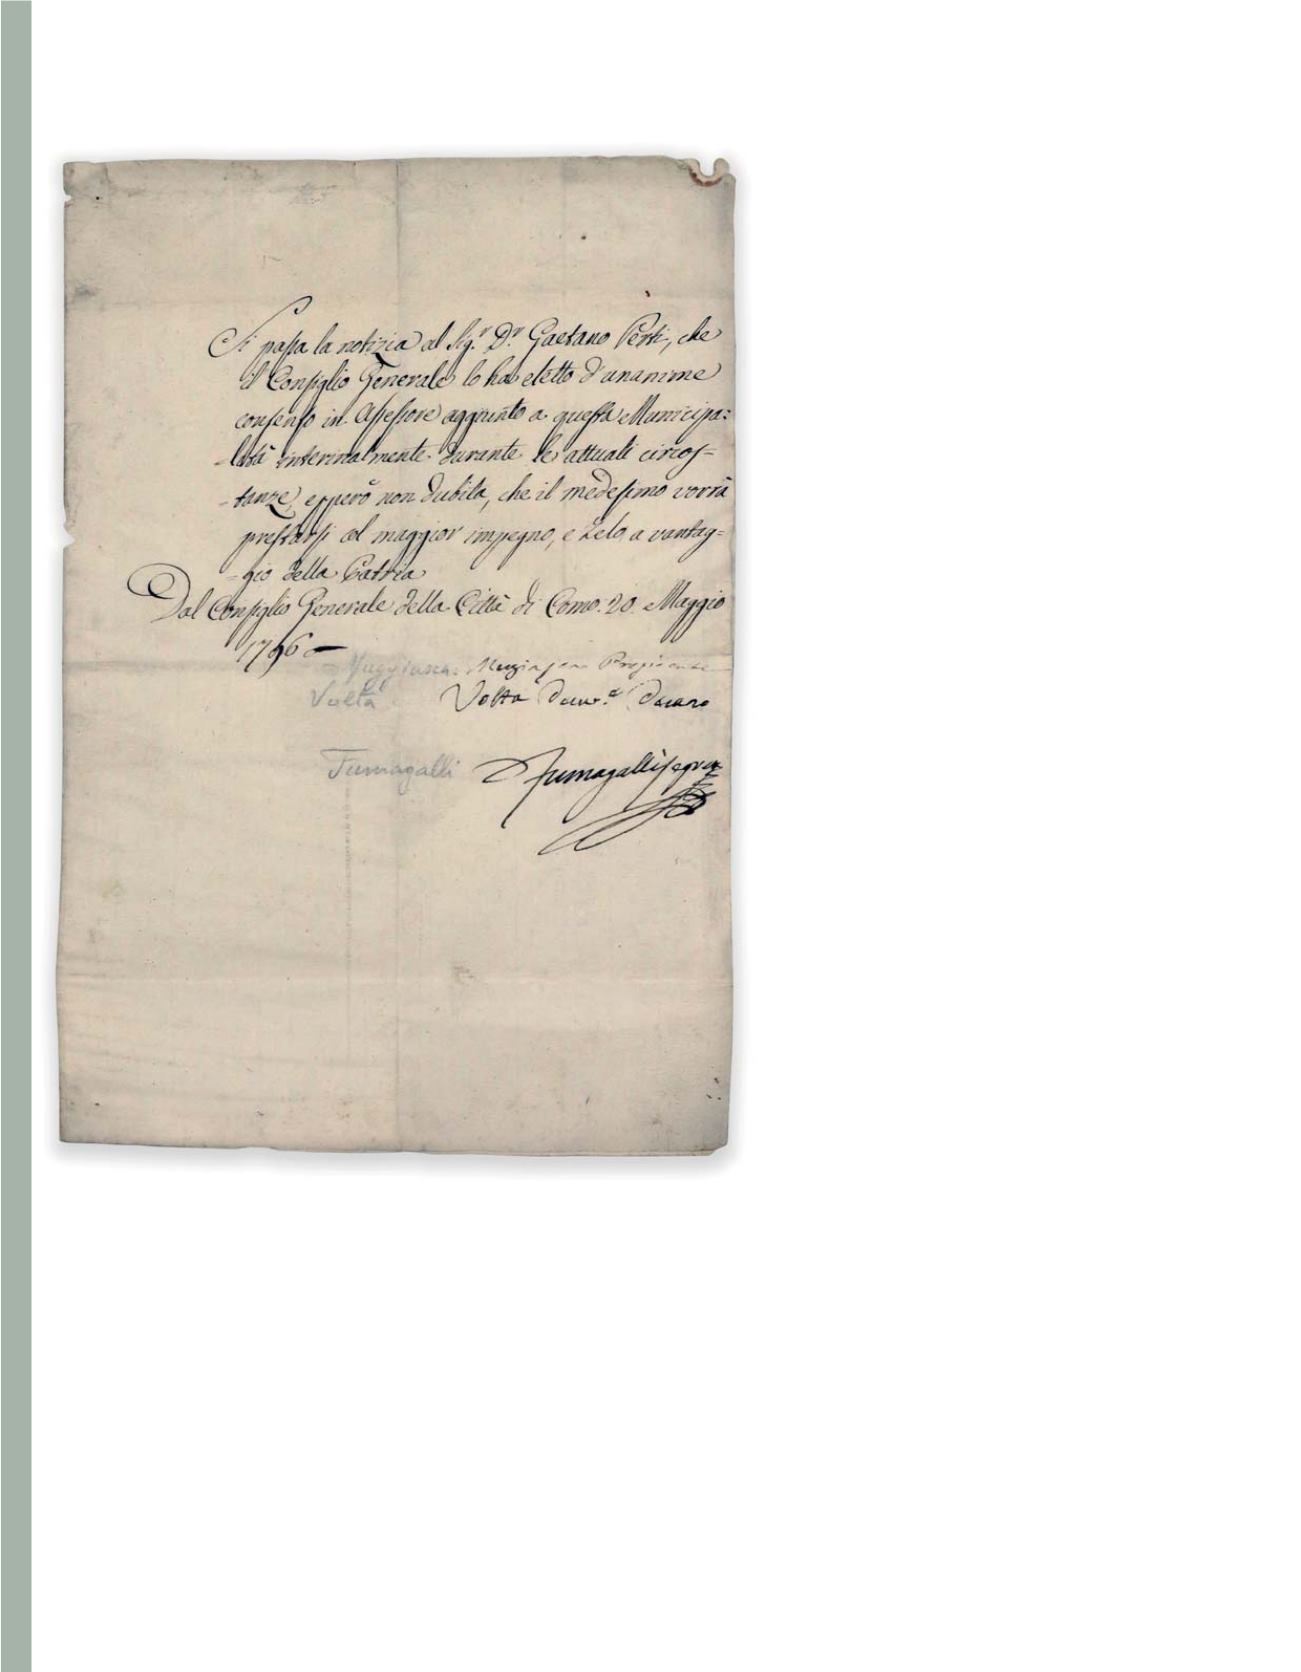 Si passa la notizia al Sig.r D.r Gaetano Perti, che
il Consiglio Generale lo ha eletto d'unanime
consenso in Assessore aggiunto a questa Municipa=
=lità interinalmente durante le attuali circos=
=tanze, epperò non dubita, che il medesimo vorrà
prestarsi col maggior impegno, e zelo, a vantag=
=gio della Patria
Dal Consiglio Generale della Città di Como. 20. Maggio
1796
Muggiasca
Volta Volta Decano
Fumagalli Fumagalli